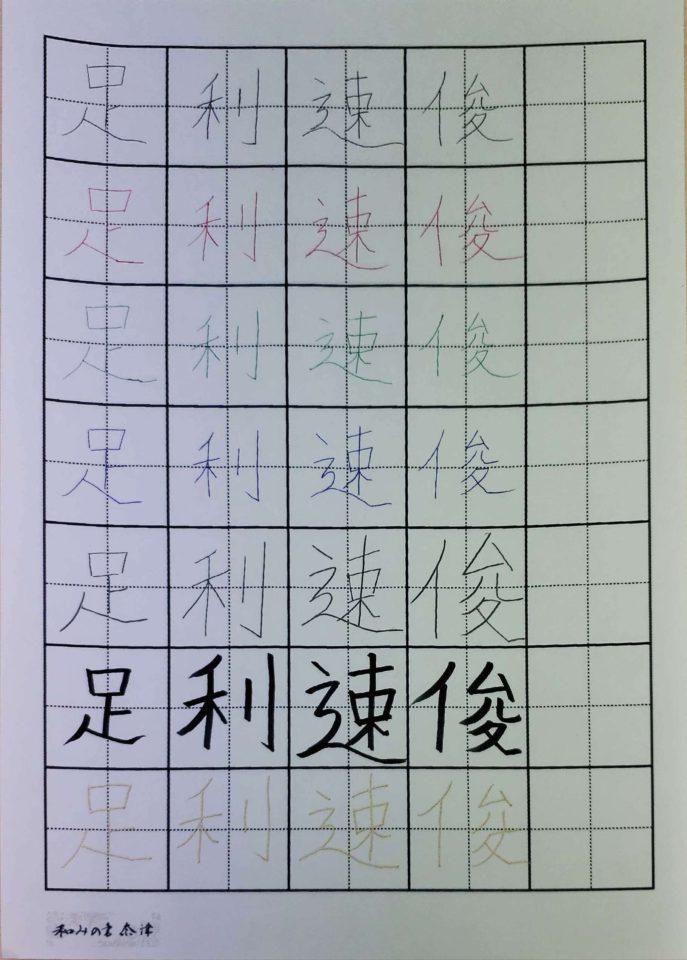 足利速俊
足利速俊
足利速俊
足利速俊
足利速俊
足利速俊
足利速俊
和みの書 奈津